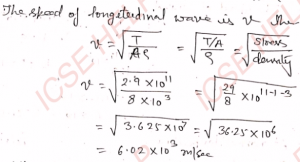 The speed of longitudinal wave is v the
v = √T/Aρ = √T/A/ρ = √stress/density
v = √2.9 × 10^11/8 × 10^3 = √29/8 × 10^11-1-3
= √3.625 × 10^7 = √36.25 × 10^6
= 6.02 × 10^3 m/sec